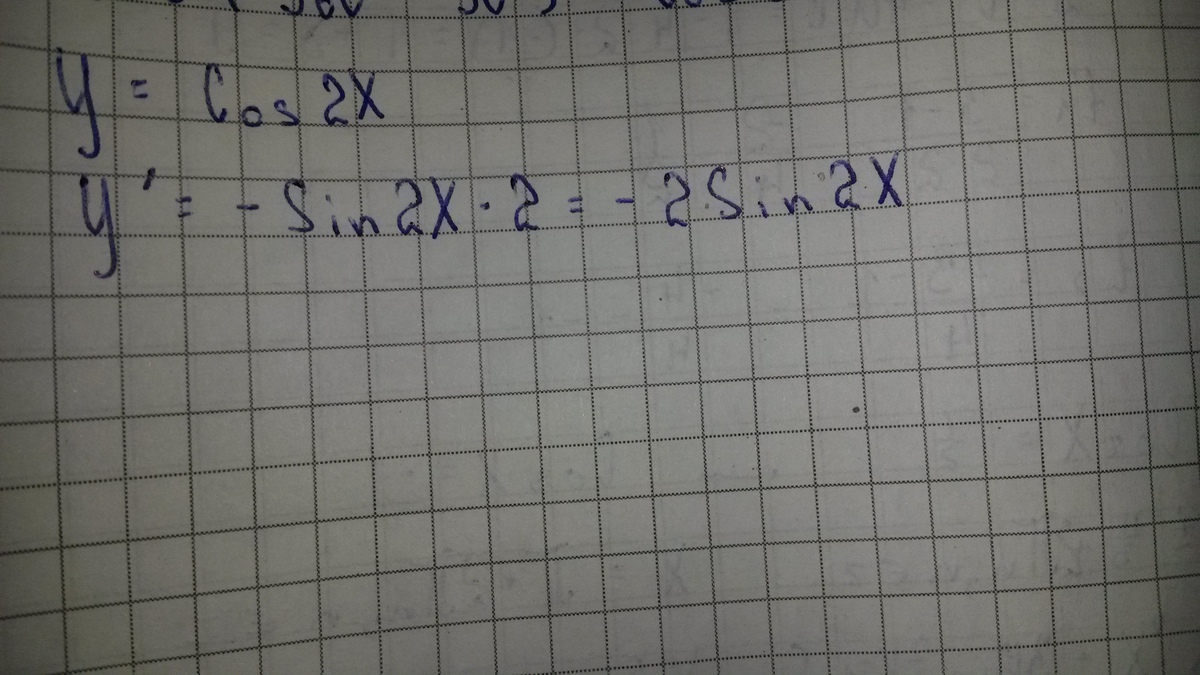 y = Cos 2X
y' = - Sin 2X · 2 = - 2 Sin 2X